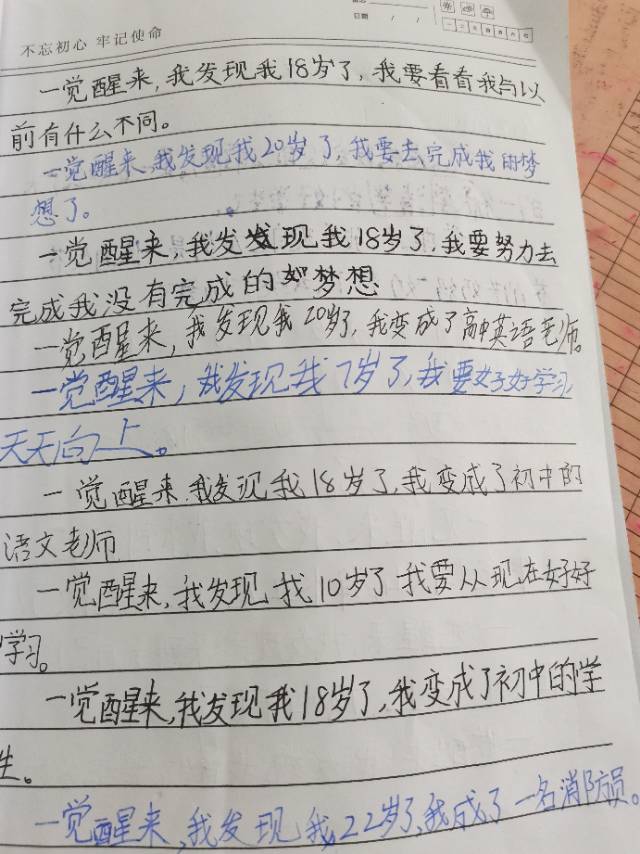 不忘初心 牢记使命
日期 / /
一觉醒来，我发现我18岁了，我要看看我与以
前有什么不同。
一觉醒来，我发现我20岁了，我要去完成我的梦
想了。
一觉醒来，我发现我18岁了，我要努力去
完成我没有完成的梦想
一觉醒来，我发现我20岁了，我变成了高中英语老师。
一觉醒来，我发现我7岁了，我要好好学习
天天向上。
一觉醒来，我发现我18岁了，我变成了初中的
语文老师
一觉醒来，我发现我10岁了 我要从现在好好
学习。
一觉醒来，我发现我18岁了，我变成了初中的学
生。
一觉醒来，我发现我22岁了，我成了一名消防员。